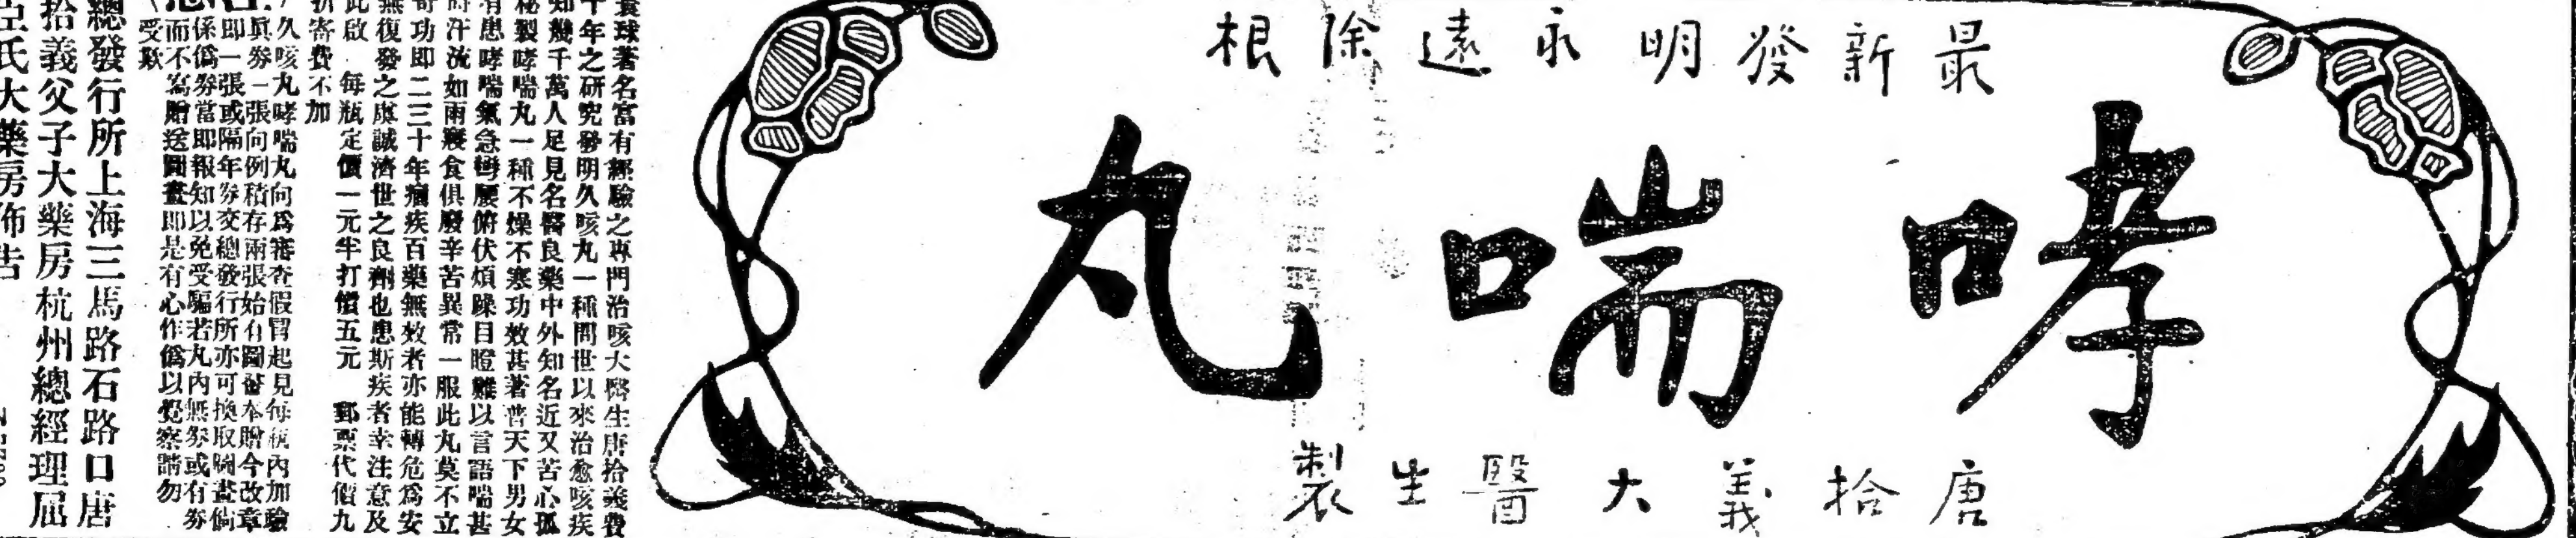 最新發明永遠除根
哮喘丸
唐拾義大醫生製
寰球著名富有經驗之專門治咳大醫生唐拾義費
十年之研究發明久咳丸一種問世以來治愈咳疾
知幾千萬人足見名醫良藥中外知名近又苦心孤
秘製哮喘丸一種不燥不寒功效甚著普天下男女
有患哮喘氣急彎腰俯伏煩躁目瞪難以言語喘甚
時汗流如雨寢食俱廢辛苦異常一服此丸莫不立
奇功即二三十年痼疾百藥無效者亦能轉危為安
無復發之虞誠濟世之良劑也患斯疾者幸注意及
此啟 每瓶定價一元半打價五元 郵票代價九
折寄費不加
久咳丸哮喘丸向爲審查假冒起見每瓶內加驗
真券一張向例積存兩張始有圖畫奉贈今改章
即一張或隔年券交總發行所亦可換取圖畫倘
係僞券當即報知以免受騙若丸內無券或有券
而不寫贈送圖畫即是有心作僞以覺察請勿
受欺
總發行所上海三馬路石路口唐
拾義父子大藥房杭州總經理屈
臣氏大藥房佈告